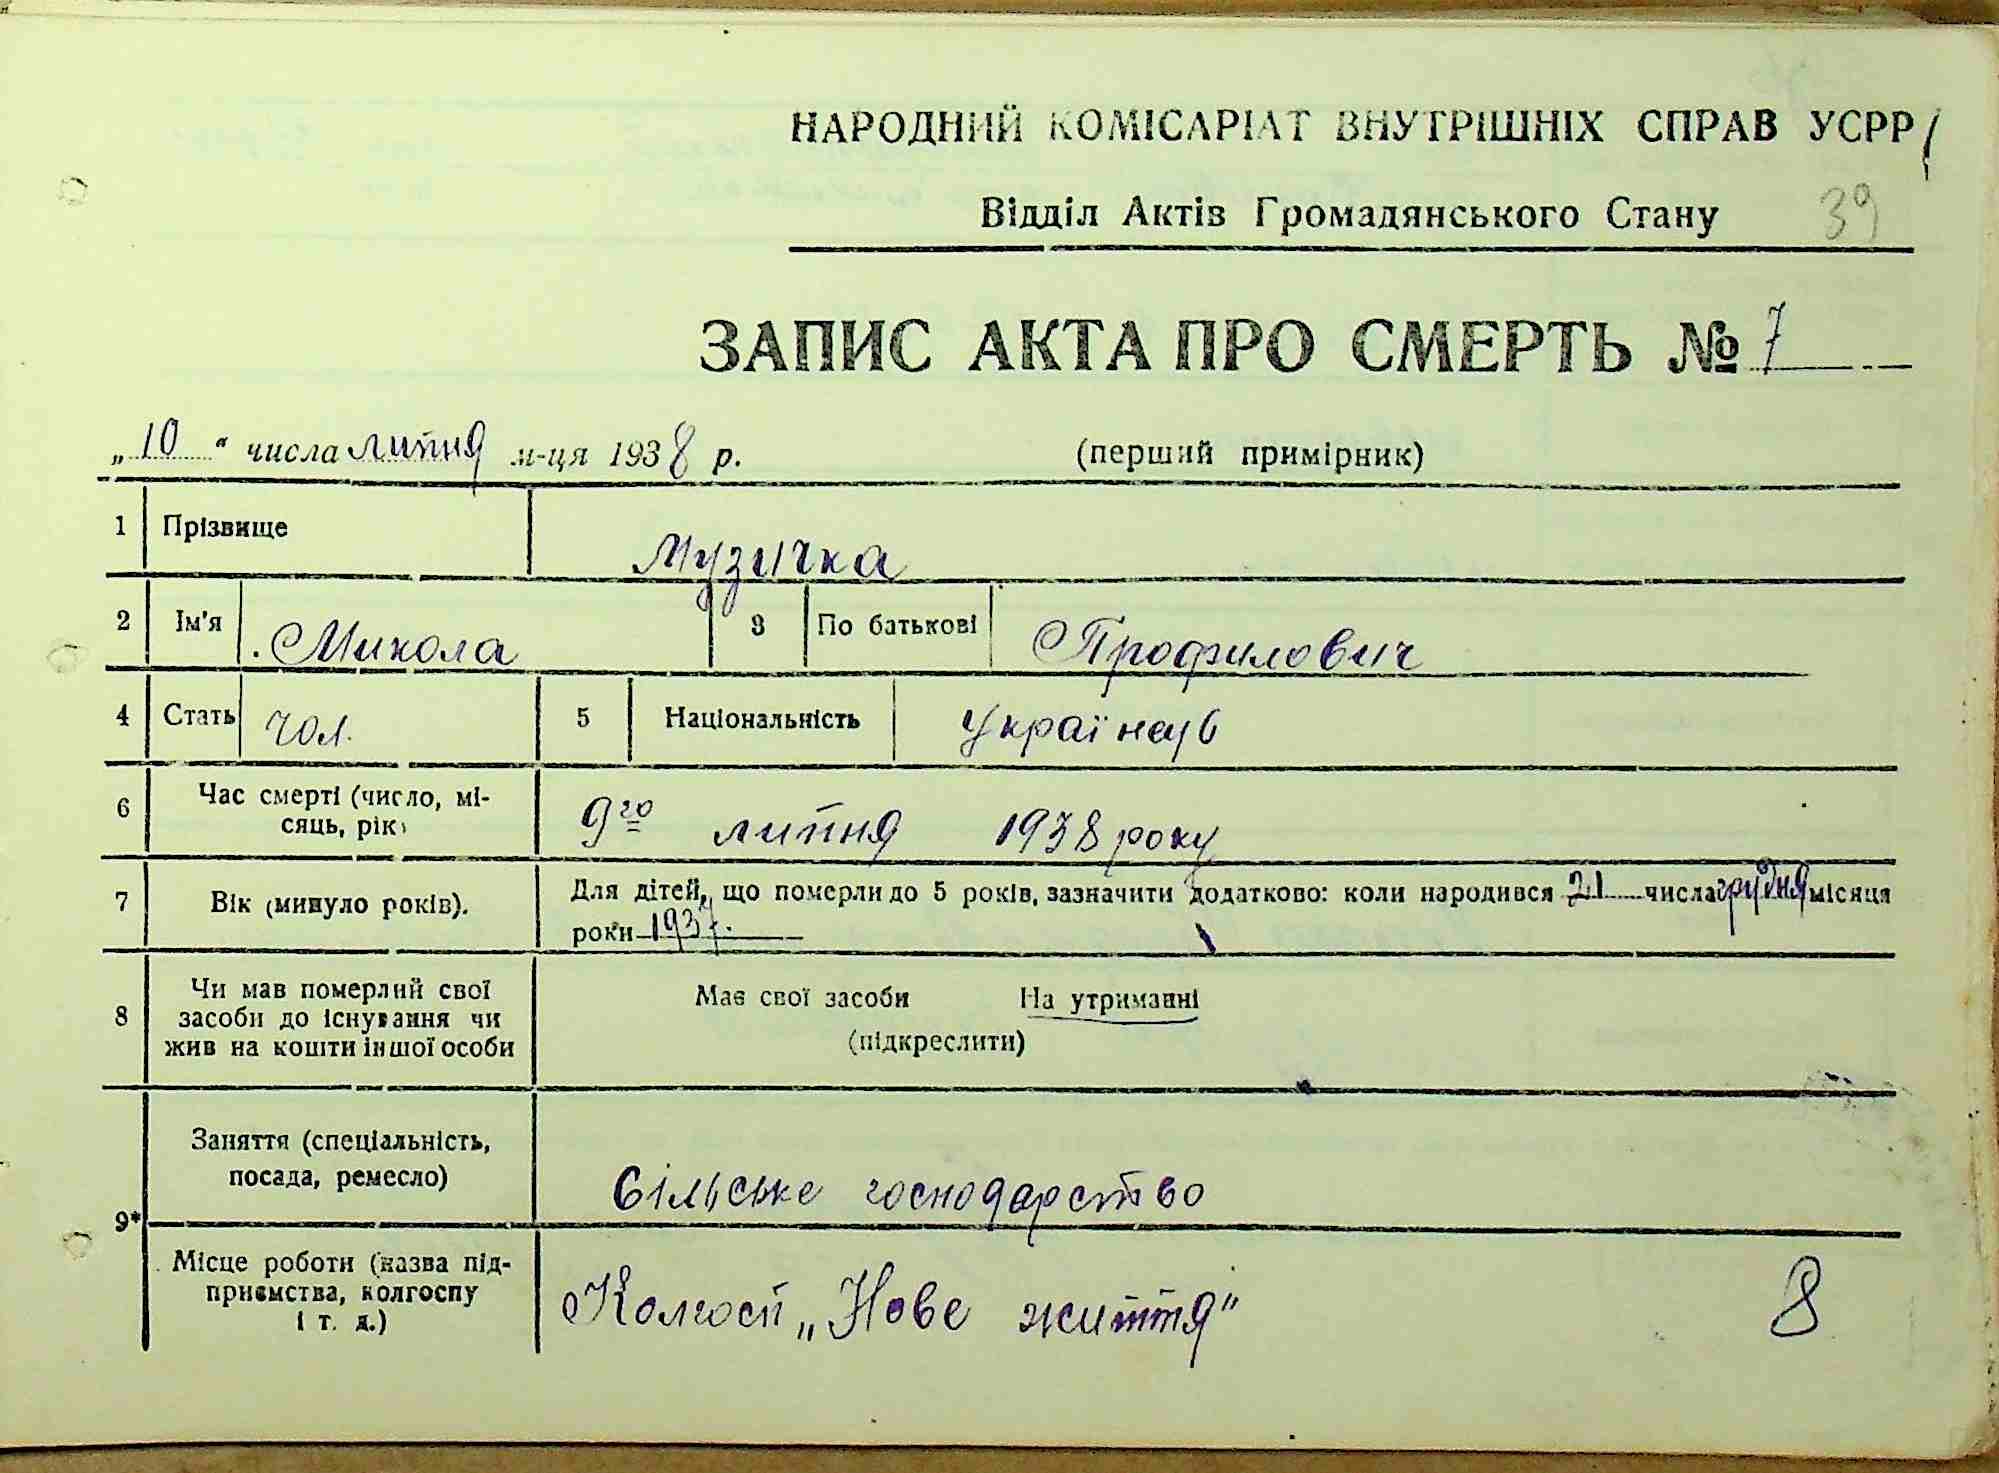 НАРОДНИЙ КОМІСАРІАТ ВНУТРІШНІХ СПРАВ УСРР
Відділ Актів Громадянського Стану 39
ЗАПИС АКТА ПРО СМЕРТЬ № 7
„10“ числа липня м-ця 1938 р. (перший примірник)
1 Прізвище Музичка
2 Ім'я Микола 3 По батькові Трофилович
4 Стать чол. 5 Національність Українець
6 Час смерті (число, мі-
сяць, рік) 9го липня 1938 року
7 Вік (минуло років). Для дітей, що померли до 5 років, зазначити додатково: коли народився 21 числа грудня місяця
роки 1937.
8 Чи мав померлий свої
засоби до існування чи
жив на кошти іншої особи
Має свої засоби На утриманні
(підкреслити)
9* Заняття (спеціальність,
посада, ремесло) Сільське господарство
Місце роботи (назва під-
приємства, колгоспу
і т. д.) Колгосп „Нове життя“ 8